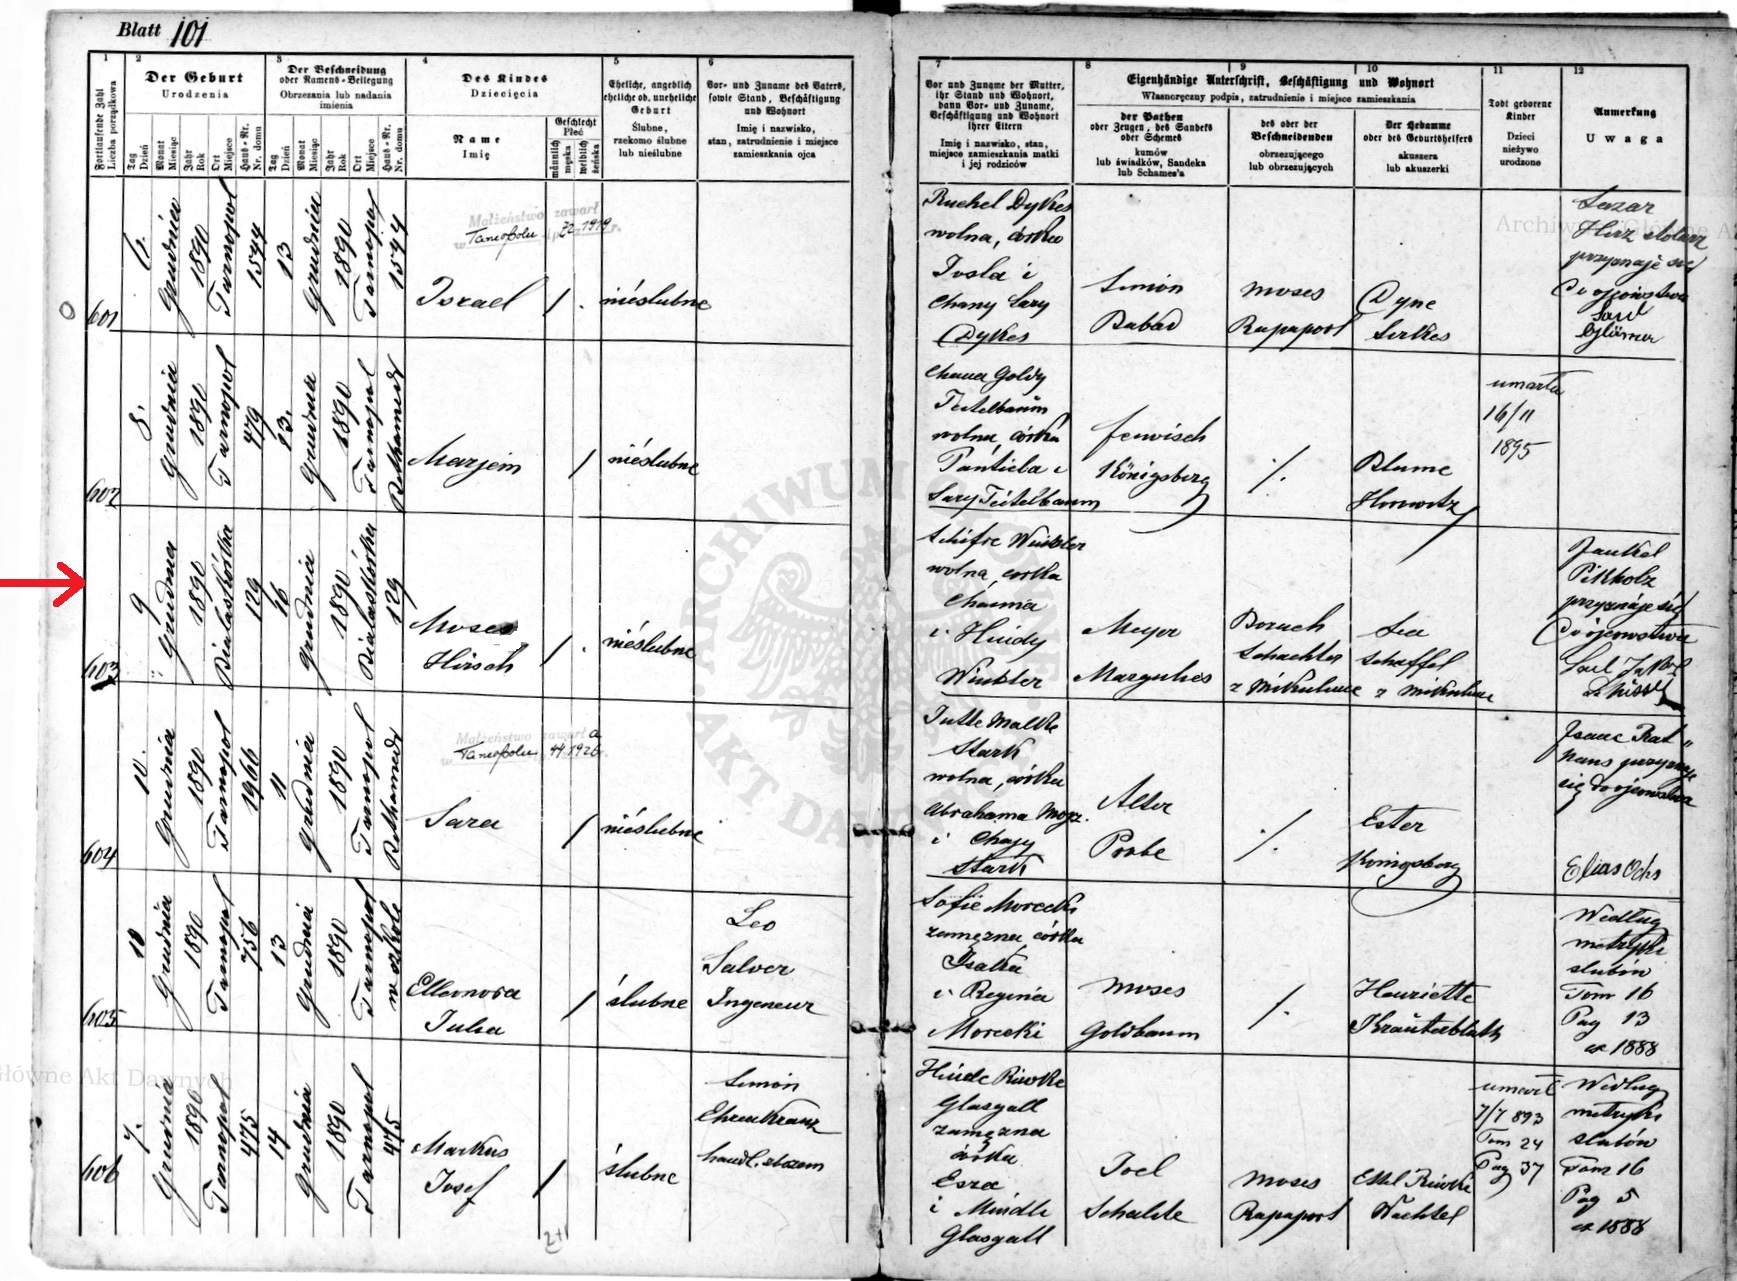 Blatt 101
1
2
Der Geburt
Urodzenia
3
Der Beschneidung
oder Namens-Beilegung
Obrzezania lub nadania
imienia
4
Des Kindes
Dziecięcia
5
Eheliche, angeblich
eheliche od. uneheliche
Geburt
Ślubne,
rzekomo ślubne
lub nieślubne
6
Vor- und Zuname des Vaters,
sowie Stand, Beschäftigung
und Wohnort
Imię i nazwisko,
stan, zatrudnienie i miejsce
zamieszkania ojca
Fortlaufende Zahl
Liczba porządkowa
Tag
Dzień
Monat
Miesiąc
Jahr
Rok
Ort
Miejsce
Haus-Nr.
Nr. domu
Tag
Dzień
Monat
Miesiąc
Jahr
Rok
Ort
Miejsce
Haus-Nr.
Nr. domu
Name
Imię
Geschlecht
Płeć
männlich
męska
weiblich
żeńska
7
Vor und Zuname der Mutter,
ihr Stand und Wohnort,
dann Vor- und Zuname,
Beschäftigung und Wohnort
ihrer Eltern
Imię i nazwisko, stan,
miejsce zamieszkania matki
i jej rodziców
8
9
10
Eigenhändige Unterschrift, Beschäftigung und Wohnort
Własnoręczny podpis, zatrudnienie i miejsce zamieszkania
der Pathen
oder Zeugen, des Sandeks
oder Schemes
kumów
lub świadków, Sandeka
lub Schames'a
des oder der
Beschneidenden
obrzezującego
lub obrzezujących
Der Hebamme
oder des Geburtshelfers
akuszera
lub akuszerki
11
Todt geborene
Kinder
Dzieci
nieżywo
urodzone
12
Anmerkung
Uwaga
601
6.
Grudnia
1890
Tarnopol
1544
13
Grudnia
1890
Tarnopol
1544
Małżeństwo zawarł
Tarnopolu 1919 r.
Israel
nieślubne
Ruchel Dykes
wolna, córka
Josla i
Chany Sary
Dykes
Simon
Babad
Moses
Rapaport
Dyne
Serkes
Lazar
Herz stolarz
przyznaje się
Do ojcowstwa
602
8.
Grudnia
1890
Tarnopol
479
13.
Grudnia
1890
Tarnopol
Bethamedr
Marjem
nieślubne
Chana Goldy
Teitelbaum
wolna, córka
Pantiela i
Sary Teitelbaum
Königsberg
Blume
Horowitz
umarła
16/11
1895
603
9
Grudnia
1890
Białaskórka
129
16
Grudnia
1890
Białaskórka
129
Moses
Hirsch
nieślubne
Schifre Winkler
wolna, corka
Chaima
i Hindy
Winkler
Meyer
Margulies
Boruch
Schachter
z Mikuliniec
Lea
Schaffel
z Mikuliniec
Jankel
Pikholz
przyznaje się
Do ojcowstwa
604
10.
Grudnia
1890
Tarnopol
1966
11
Grudnia
1890
Tarnopol
Bethamedr
Małżeństwo zawarła
Tarnopolu 1926
Sara
nieślubne
Jutte Malke
Stark
wolna, córka
Abrahama Mojz.
i Chajy
Stark
Alter
Probe
Ester
Königsberg
Isaac Rat„
haus przyznaje
się do ojcowstwa
Elias Ochs
605
10
Grudnia
1890
Tarnopol
756
13
Grudnia
1890
Tarnopol
w szkole
Elleonora
Julia
ślubne
Leo
Salver
Ingeneur
Sofie Morecki
zamężna córka
Isaka
i Regina
Morecki
Moses
Goldbaum
Henriette
Kräuterblatt
Według
metryki
ślubów
Tom 16
Pag 13
ex 1888
606
7.
Grudnia
1890
Tarnopol
475
14
Grudnia
1890
Tarnopol
475
Markus
Josef
ślubne
Simon
Ehrenkranz
handl. zbozem
Hinde Riwke
Glasgall
zamężna
córka
Esra
i Mindli
Glasgall
Joel
Schalite
Moses
Rapaport
Ettel Riwke
Wachtel
umarł
7/7 893
Tom 24
Pag 37
Według
metryki
ślubów
Tom 16
Pag 5
ex 1888
ARCHIWUM GŁÓWNE AKT DAWNYCH
Główne Akt Dawnych